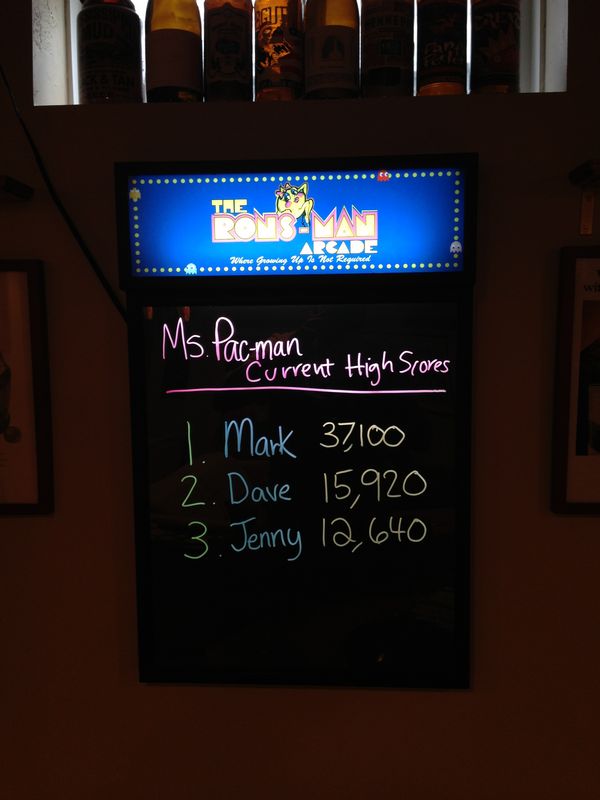 THE
RON'S-MAN
ARCADE
Where Growing Up Is Not Required
Ms. Pac-man
Current High Scores
1. Mark 37,100
2. Dave 15,920
3. Jenny 12,640